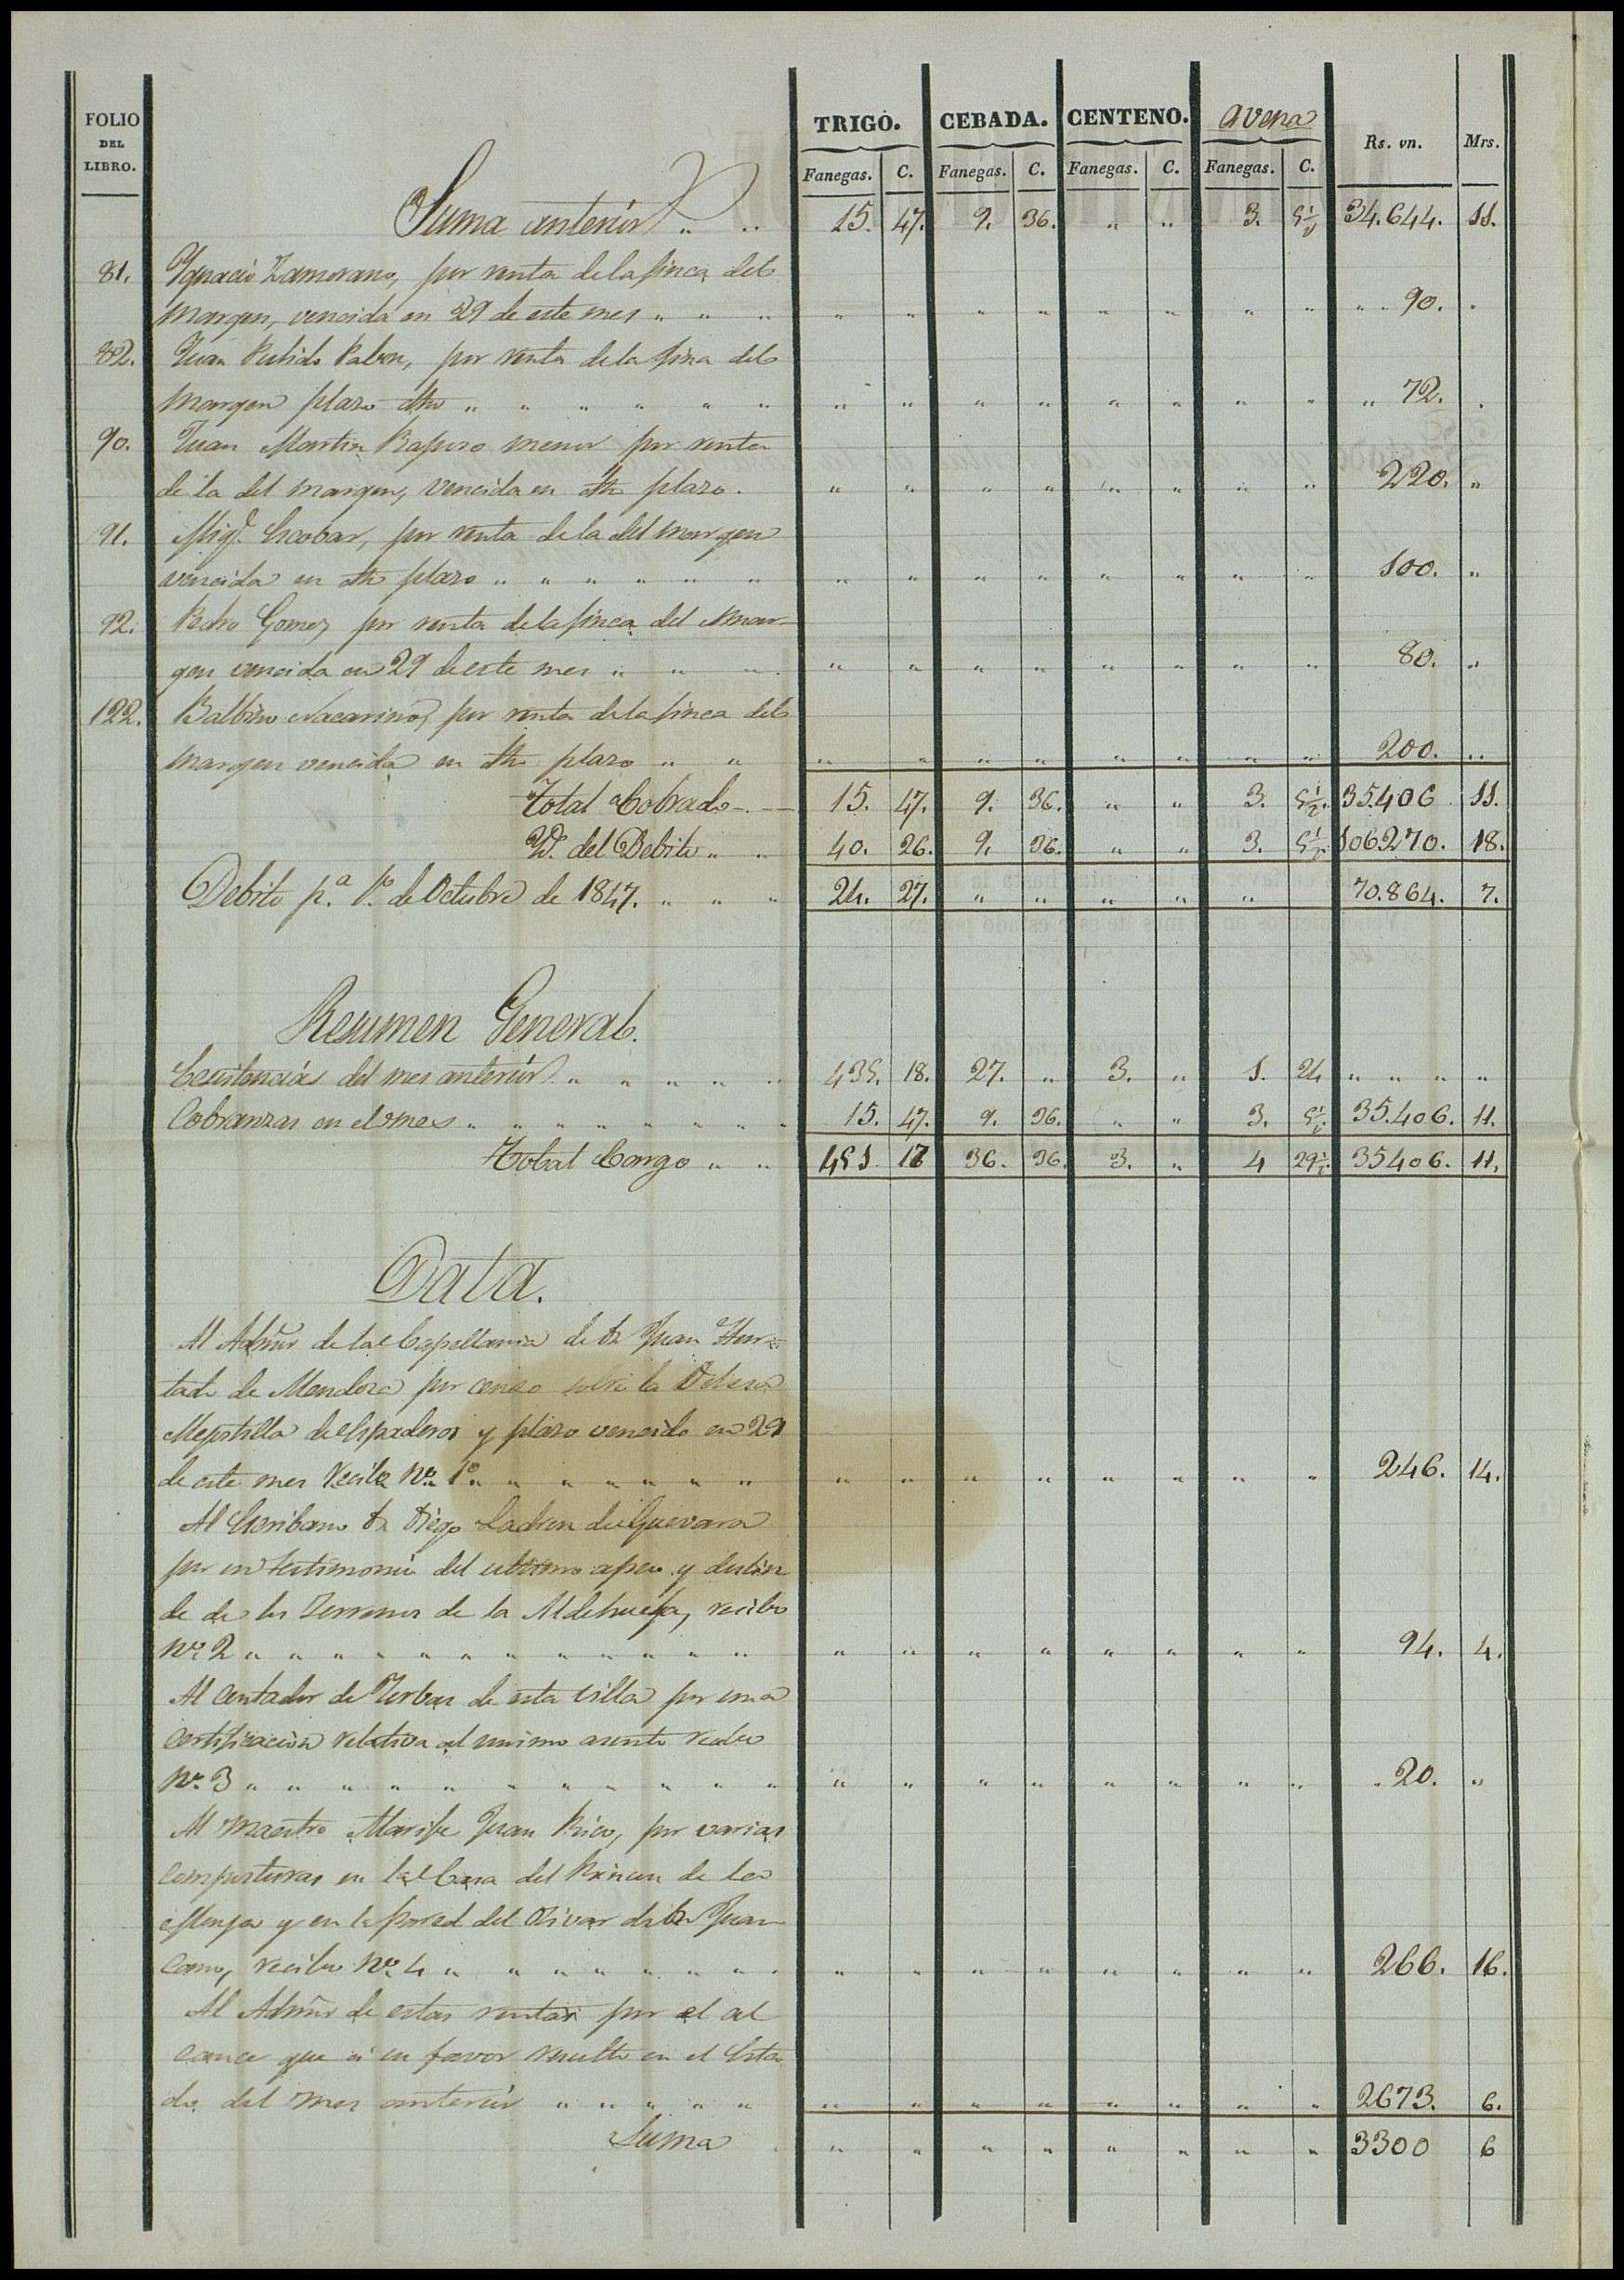 FOLIO DEL LIBRO. TRIGO. CEBADA. CENTENO. Avena Rs. vn. Mrs.
Fanegas. C. Fanegas. C. Fanegas. C. Fanegas. C.
Suma anterior " " 15. 47. 9. 36. " " 3. 5½ 34.644. 11.
81. Ygnacio Zamorano, por renta de la finca del
margen, vencida en 29 de este mes " " " " " " " " " " " " " 90. "
82. Juan Pulido Pabon, por renta de la finca del
margen plazo dho " " " " " " " " " " " " " " " " 72. "
90. Juan Martin Rapero menor por renta
de la del margen, vencida en dho plazo. " " " " " " " " 220. "
91. Migl. Escobar, por renta de la del margen
vencida en dho plazo " " " " " " " " " " " " " " " 100. "
92. Pedro Gomez por renta de la finca del mar-
gen vencida en 29 de este mes " " " " " " " " " " " 80. "
122. Balbino Nacarino, por renta de la finca del
margen vencida en dho plazo " " " " " " " " " " 200. "
Total Cobrado 15. 47. 9. 36. " " 3. 5½. 35.406 11.
Yd. del Debito " " 40. 26. 9. 36. " " 3. 5½. 106.270. 18.
Debito pa. 1o. de Octubre de 1847. " " " 24. 27. " " " " " 70.864. 7.
Resumen General.
Existencias del mes anterior " " " " " 435. 18. 27. " 3. " 1. 24 " " " "
Cobranzas en el mes " " " " " " " " 15. 47. 9. 36. " " 3. 5½ 35.406. 11.
Total Cargo " " 451. 17 36. 36. 3. " 4 29½. 35406. 11.
Data.
Al Admor de la Capellania de Dn Juan Hur-
tado de Mendoza por censo sobre la Dehesa
de Espaderos y plazo vencido en 29
de este mes recibo No. 1o " " " " " " " " " " " " " " " 246. 14.
Al Escribano Dn Diego Ladron de Guevara
por un testimonio del ultimo apeo y deslin
de de los Terrenos de la Aldehuela, recibo
No. 2 " " " " " " " " " " " " " " " " " " " " 94. 4.
Al Contador de Yerbas de esta villa por una
certificacion relativa al mismo asunto recibo
No. 3 " " " " " " " " " " " " " " " " " " " 20. "
Al maestro Alarife Juan Rico, por varias
composturas en la Casa del Rincon de la
Monja y en la pared del Olivar de Dn Juan
Cano, recibo No. 4 " " " " " " " " " " " " " " " " 266. 16.
Al Admor de estas rentas por el al
cance que á su favor resultó en el Esta
do del mes anterior " " " " " " " " " " " " " 2673. 6.
Suma " " " " " " " " 3300 6